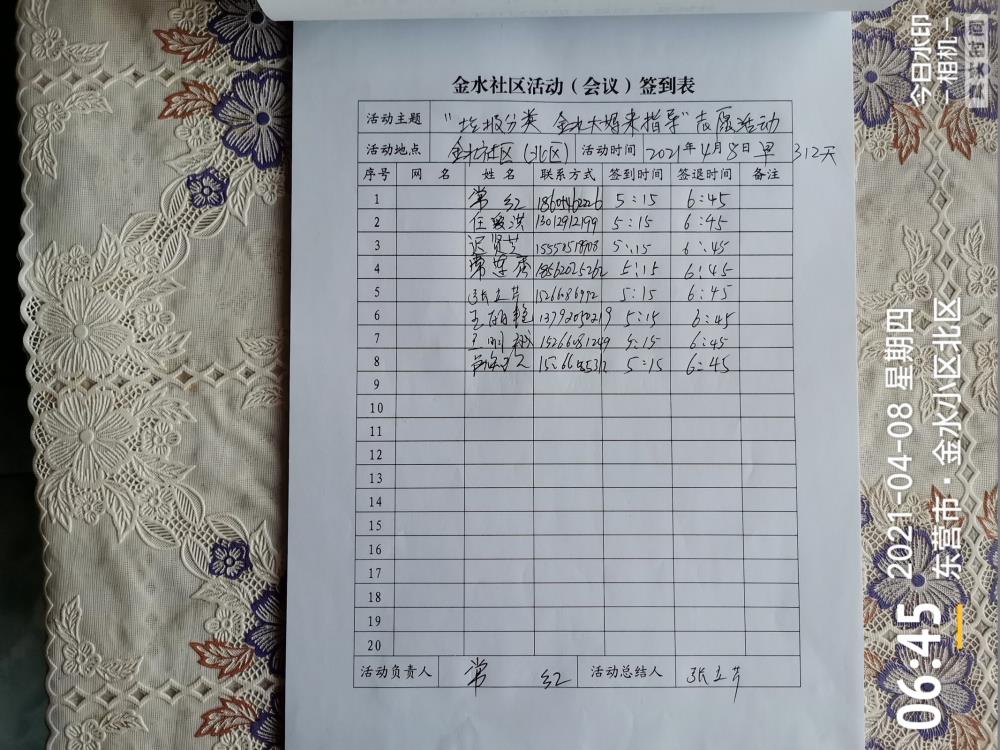 金水社区活动（会议）签到表
活动主题 "垃圾分类 金水大妈来指导"志愿活动
活动地点 金水社区（北区） 活动时间 2021年4月8日早 312天
序号 网 名 姓 名 联系方式 签到时间 签退时间 备注
1 常 红 5:15 6:45
2 13012912199 5:15 6:45
3 迟贤芝 5:15 6:45
4 18562025262 5:15 6:45
5 张立芹 5:15 6:45
6 13792050219 5:15 6:45
7 15266081249 5:15 6:45
8 5:15 6:45
9
10
11
12
13
14
15
16
17
18
19
20
活动负责人 常 红 活动总结人 张立芹
今日水印
-相机-
真实时间
06:45 2021-04-08 星期四
东营市·金水小区北区